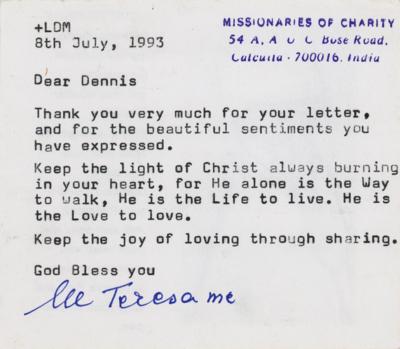 +LDM
8th July, 1993
MISSIONARIES OF CHARITY
54 A, A J C Bose Road.
Calcutta - 700016. India
Dear Dennis
Thank you very much for your letter,
and for the beautiful sentiments you
have expressed.
Keep the light of Christ always burning
in your heart, for He alone is the Way
to walk, He is the Life to live. He is
the Love to love.
Keep the joy of loving through sharing.
God Bless you
M Teresa mc